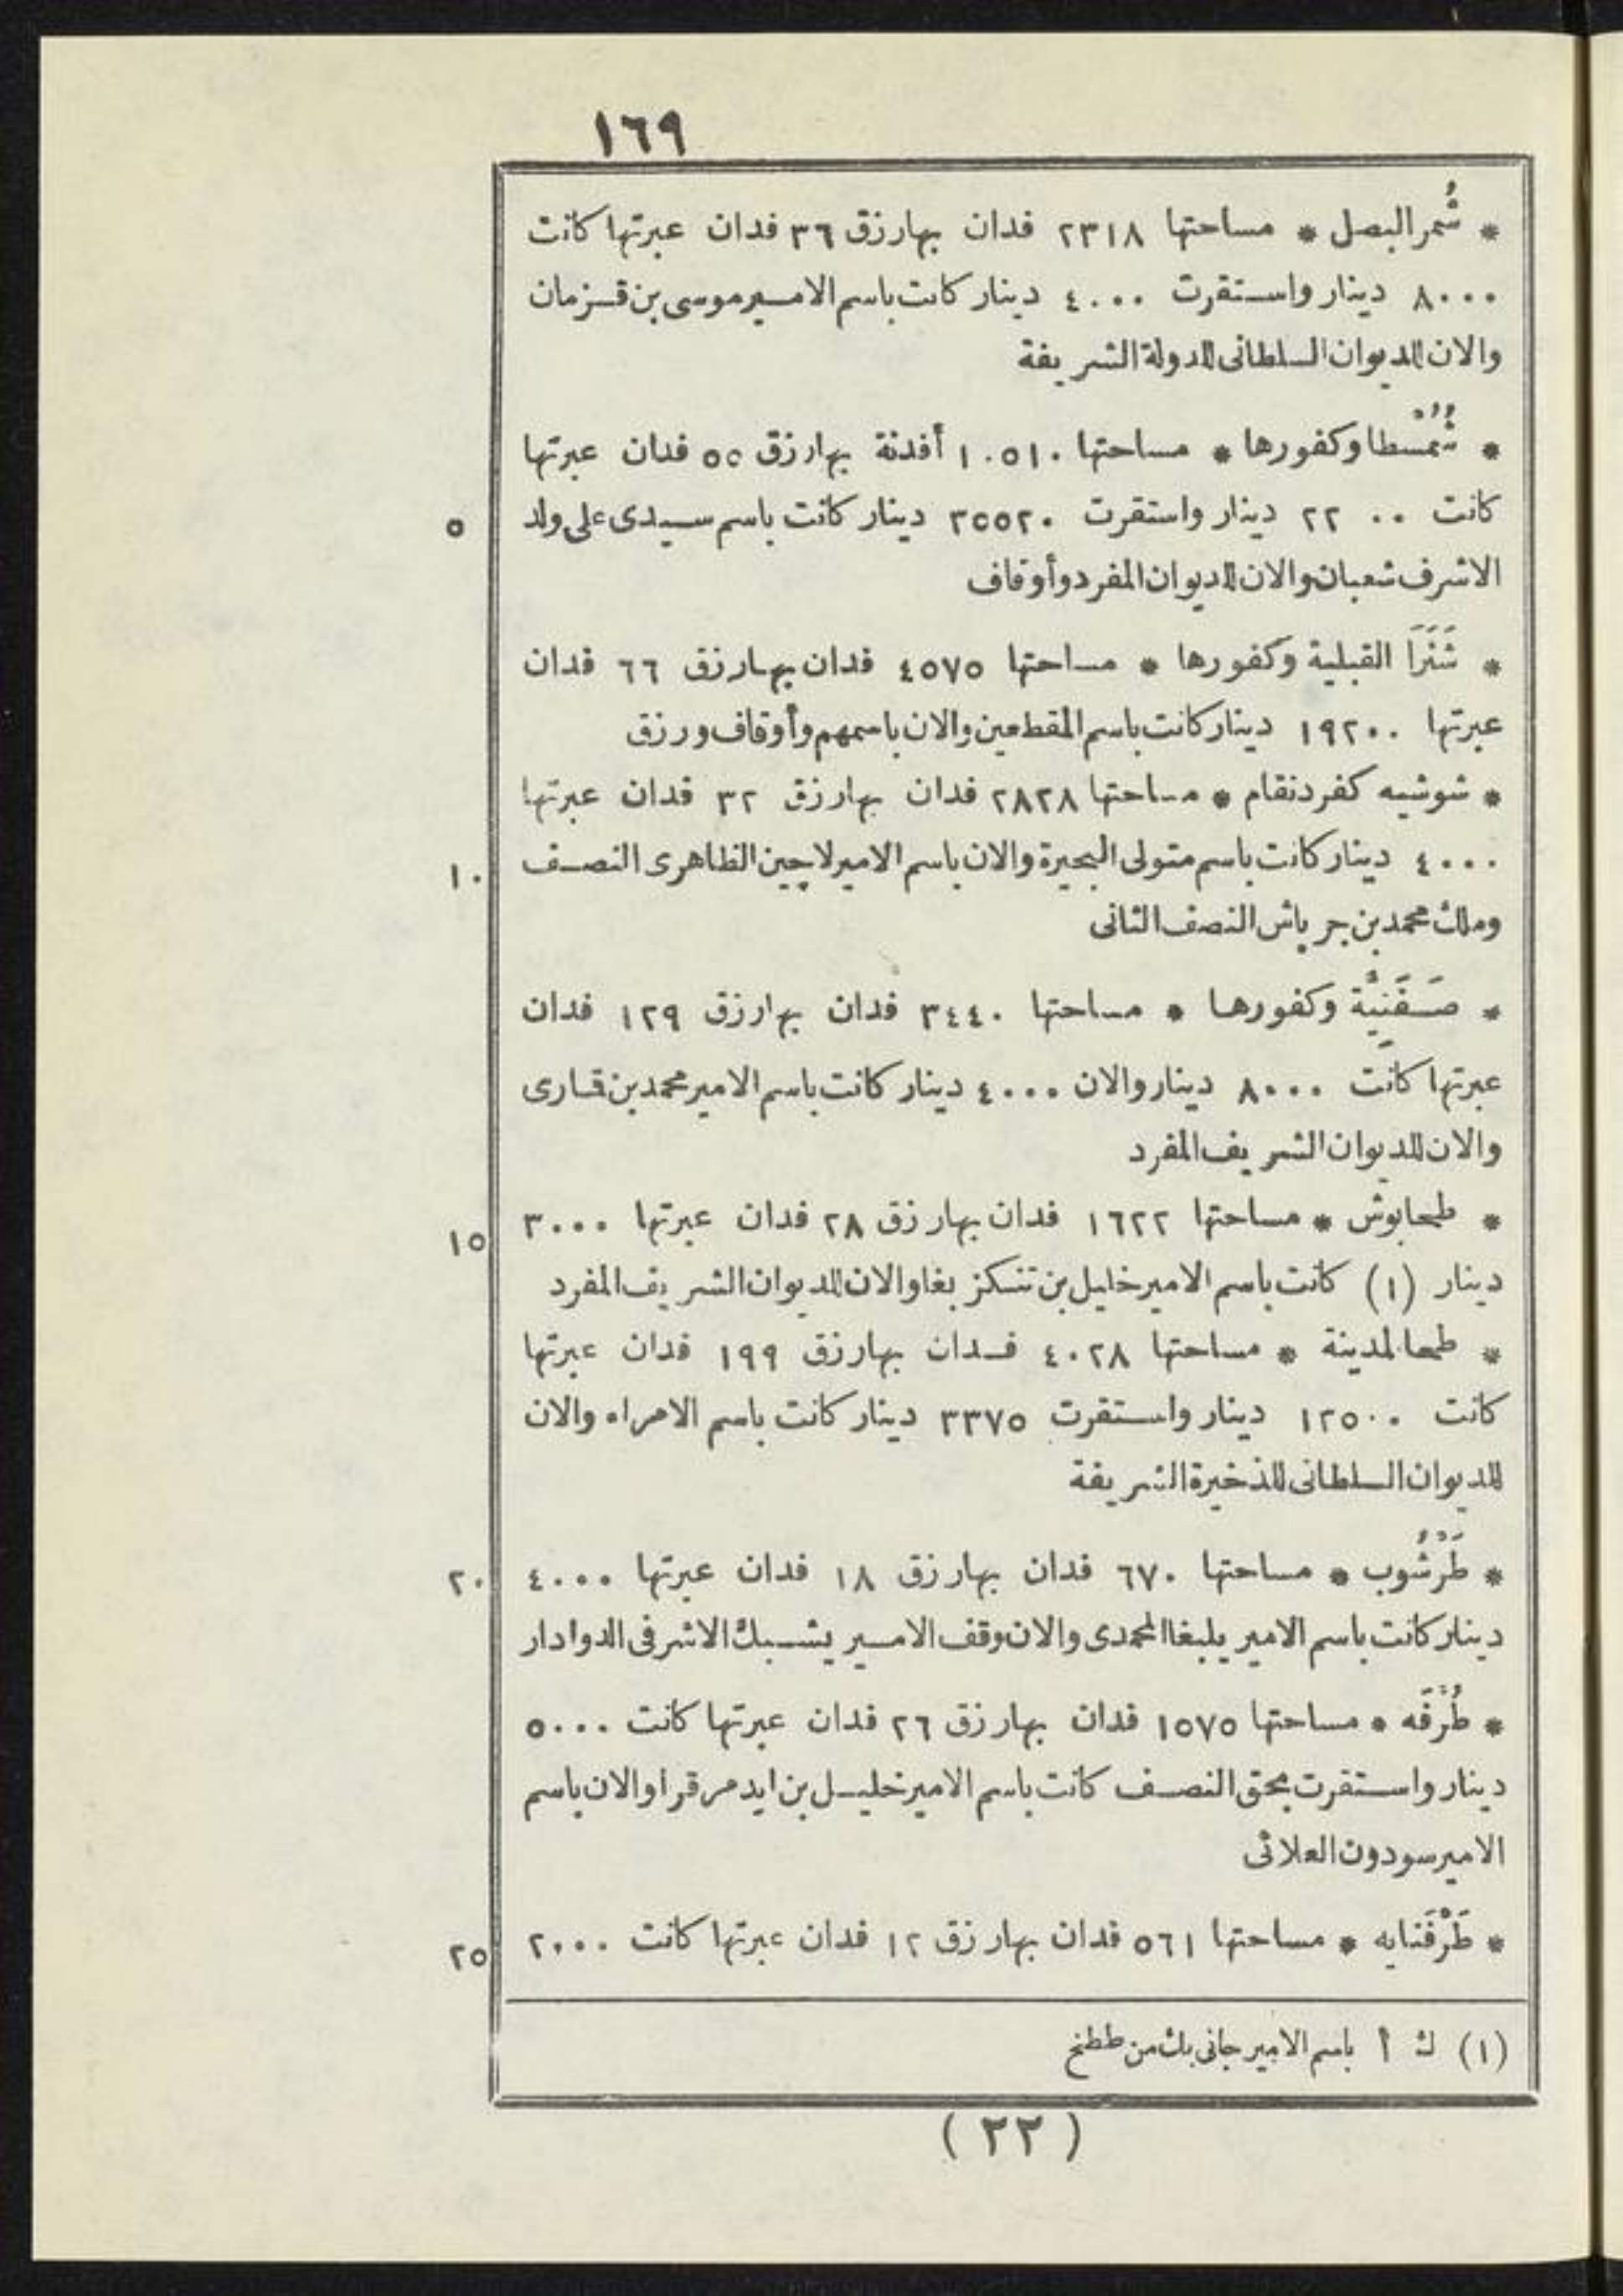 ١٦٩
* شُمر البصل * مساحتها ٢٣١٨ فدان بهارزق ٣٦ فدان عبرتها كانت
٨٠٠٠ دينار واستقرت ٤٠٠٠ دينار كانت باسم الامير موسى بن قزمان
والان للديوان السلطانى للدولة الشريفة
* شُمُسْطا وكفورها * مساحتها ١٠٥١٠ أفدنة بهارزق ٥٥ فدان عبرتها
كانت ٢٢٠٠ دينار واستقرت ٣٥٥٢٠ دينار كانت باسم سيدى على ولد
٥
الاشرف شعبان والان للديوان المفرد وأوقاف
* شَنَرَا القبلية وكفورها * مساحتها ٤٥٧٥ فدان بهارزق ٦٦ فدان
عبرتها ١٩٢٠٠ دينار كانت باسم المقطعين والان باسمهم وأوقاف ورزق
* شوشيه كفر دنقام * مساحتها ٢٨٢٨ فدان بهارزق ٣٢ فدان عبرتها
٤٠٠٠ دينار كانت باسم متولى البحيرة والان باسم الامير لاجين الظاهرى النصف
١٠
وملك محمد بن جرباش النصف الثانى
* صَفَنِيَّة وكفورها * مساحتها ٣٤٤٠ فدان بهارزق ١٢٩ فدان
عبرتها كانت ٨٠٠٠ دينار والان ٤٠٠٠ دينار كانت باسم الامير محمد بن قمارى
والان للديوان الشريف المفرد
* طحابوش * مساحتها ١٦٢٢ فدان بهارزق ٢٨ فدان عبرتها ٣٠٠٠
١٥
دينار (١) كانت باسم الامير خليل بن تنكز بغا والان للديوان الشريف المفرد
* طحا المدينة * مساحتها ٤٠٢٨ فدان بهارزق ١٩٩ فدان عبرتها
كانت ١٢٥٠٠ دينار واستقرت ٣٣٧٥ دينار كانت باسم الامراء والان
للديوان السلطانى للذخيرة الشريفة
* طَرْشُوب * مساحتها ٦٧٠ فدان بهارزق ١٨ فدان عبرتها ٤٠٠٠
٢٠
دينار كانت باسم الامير يلبغا المحمدى والان وقف الامير يشبك الاشرفى الدوادار
* طُرْفَه * مساحتها ١٥٧٥ فدان بهارزق ٢٦ فدان عبرتها كانت ٥٠٠٠
دينار واستقرت بحق النصف كانت باسم الامير خليل بن ايدمر قرا والان باسم
الامير سودون العلائى
* طَرْفَنايه * مساحتها ٥٦١ فدان بهارزق ١٢ فدان عبرتها كانت ٢٠٠٠
٢٥
(١) ك أ باسم الامير جانى بك من ططخ
(٢٢)